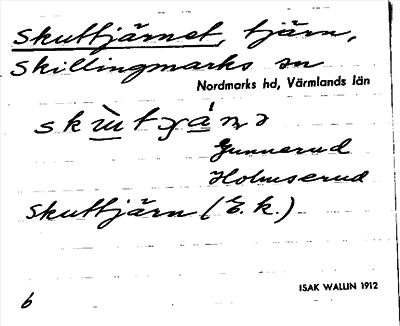 Skuttjärnet, tjärn,
Skillingmarks sn
Nordmarks hd, Värmlands län
Gunnerud
Holmserud
Skuttjärn (E.k.)
ISAK WALLIN 1912
6